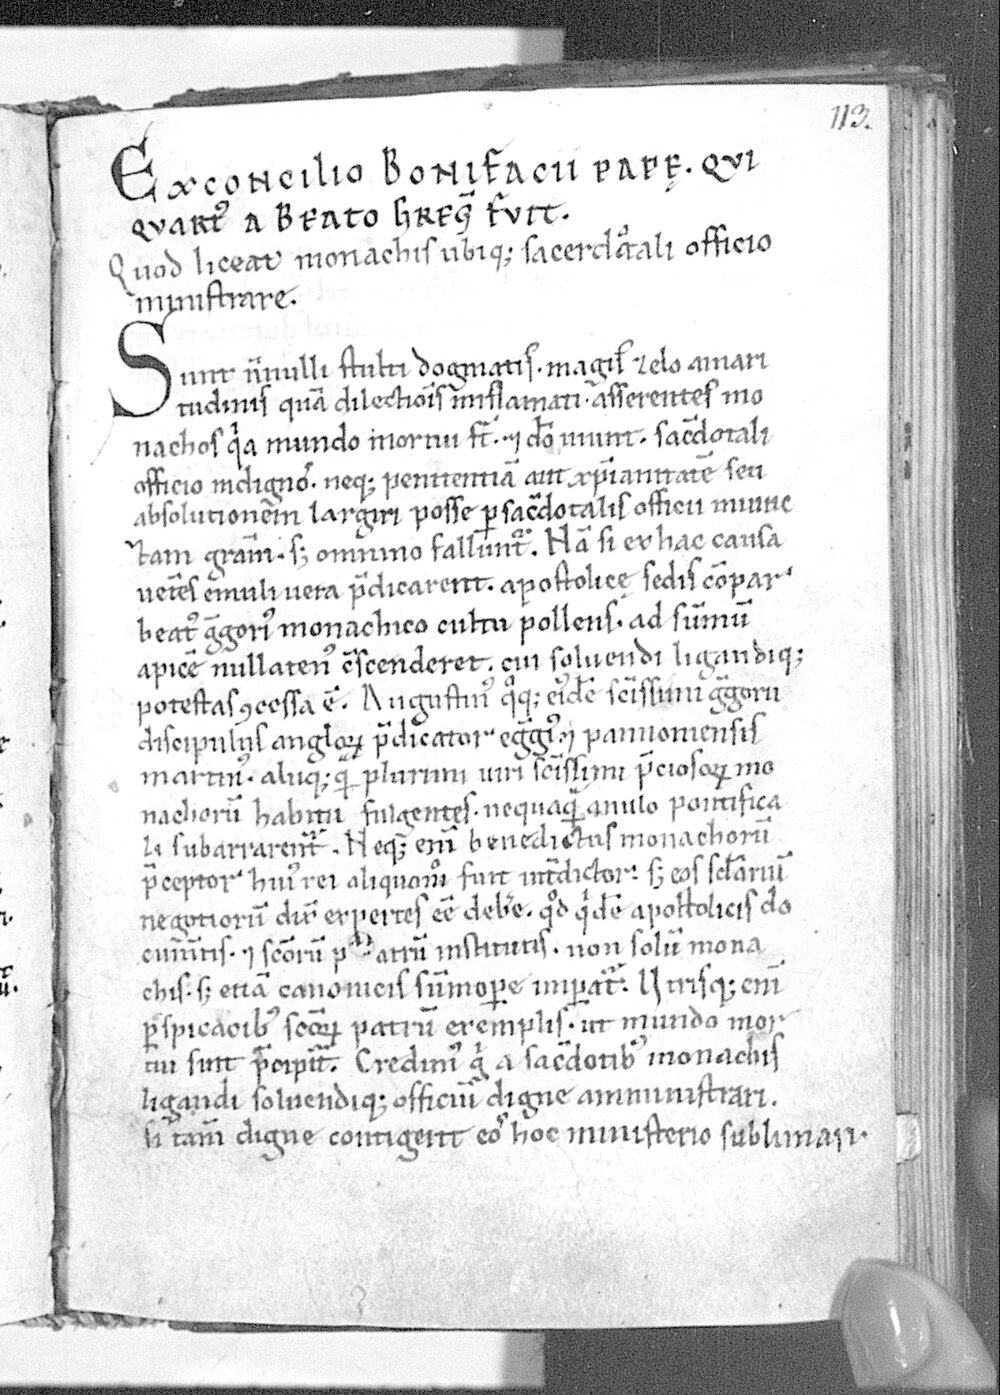 113.
Ex concilio Bonifacii papę. qui
quart᷒ a beato Greg̃ fuit.
Quod liceat monachis ubiq; sacerdotali officio
ministrare.
Sunt ñnulli stulti dogmatis. magis̃ zelo amari
tudinis quã dilectiõis inflãmati. asserentes mo
nachos q̃a mundo mortui st̃. ⁊ dõ uiuunt. sac̃dotali
officio indignos᷒. neq; penitentiã aut xp̃ianitatẽ seu
absolutionem largiri posse p̱ sac̃dotalis officii iniunc
tam gr̃am. s; omnino fallunt᷒. Nã si ex hac causa
uet̃es emuli uera p̃dicarent. apostolicę sedis cõpar
beat᷒ g̃gori᷒ monachico cultu pollens. ad sũmũ
apicẽ nullaten᷒ c̃scenderet. cui soluendi ligandiq;
potestas ꝯcessa ẽ. Augustin᷒ q̊q; ei᷒dẽ sc̃issimi g̃gorii
discipulus angloꝝ p̃dicator egg̃i᷒. ⁊ pannoniensis
martin᷒. aliiq; q̃ plurimi uiri sc̃issimi p̃ciosoꝝ mo
nachorũ habitu fulgentes. nequaq̃ anulo pontifica
li subarrarent᷒. Neq; eni᷒ benedictus monachorũ
p̃ceptor hui᷒ rei aliquom̊ fuit int̃dictor. s; eos sc̃lariũ
negotiorũ dix̃ expertes eẽ deb̃e. q̊d q̃dẽ apostolicis do
cum̃tis. ⁊ sc̃orũ patrũ institutis. non solũ mona
chis. s; etiã canonicis sũmop̱e imp̱at᷒. Utrisq; eni᷒
p̱spicacib᷒ sc̃oꝝ patrũ exemplis. ut mundo mor
tui sint p̃cipit᷒. Credim᷒ g̊ a sac̃dotib᷒ monachis
ligandi soluendiq; officiũ digne amministrari.
si tam̃ digne contigerit eos᷒ hoc ministerio sublimari.